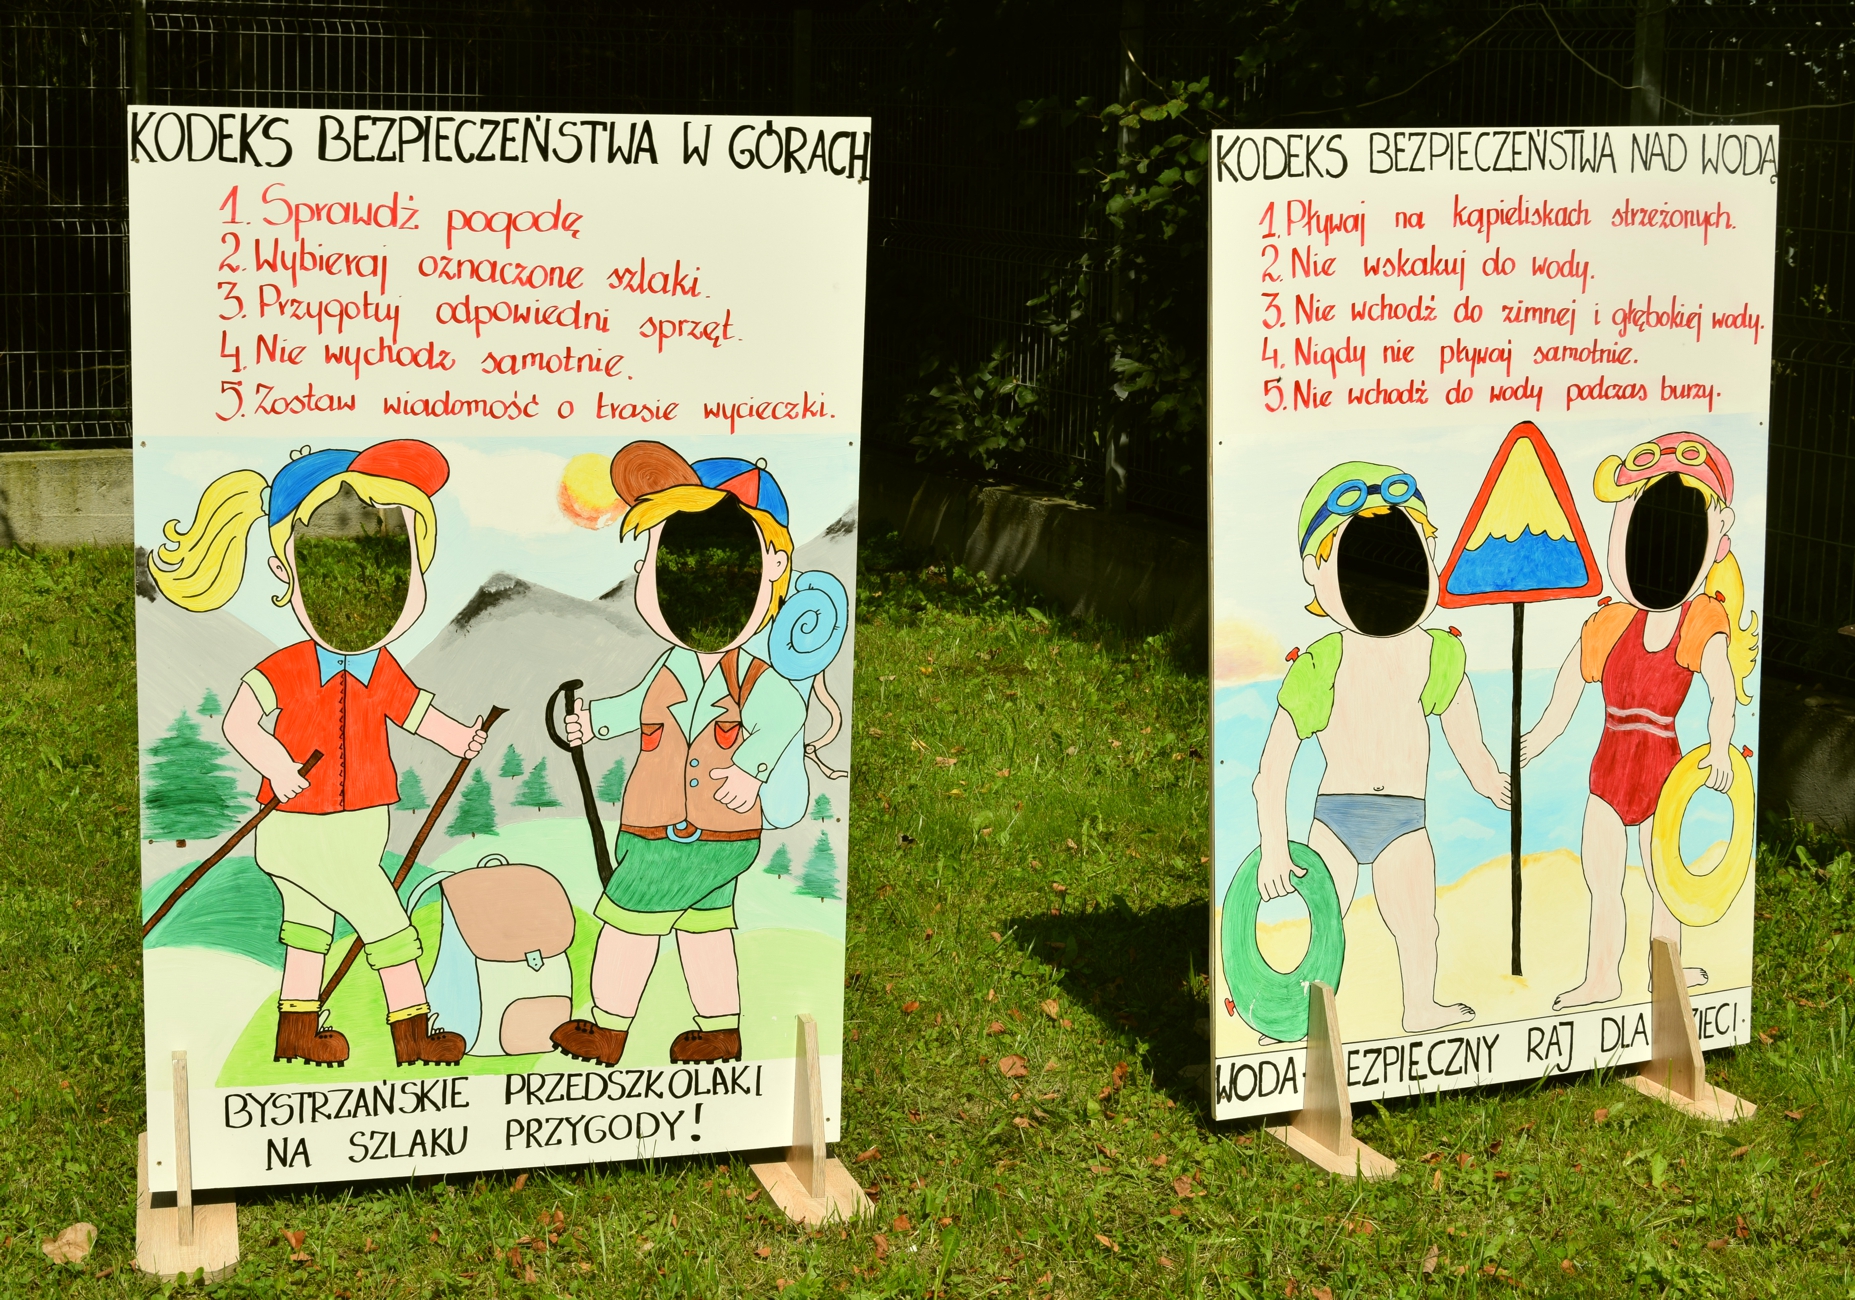 KODEKS BEZPIECZEŃSTWA W GÓRACH
1. Sprawdź pogodę
2. Wybieraj oznaczone szlaki.
3. Przygotuj odpowiedni sprzęt.
4. Nie wychodź samotnie.
5. Zostaw wiadomość o trasie wycieczki.
BYSTRZAŃSKIE PRZEDSZKOLAKI
NA SZLAKU PRZYGODY!
KODEKS BEZPIECZEŃSTWA NAD WODĄ
1. Pływaj na kąpieliskach strzeżonych.
2. Nie wskakuj do wody.
3. Nie wchodź do zimnej i głębokiej wody.
4. Nigdy nie pływaj samotnie.
5. Nie wchodź do wody podczas burzy.
WODA- EZPIECZNY RAJ DLA ZIECI.